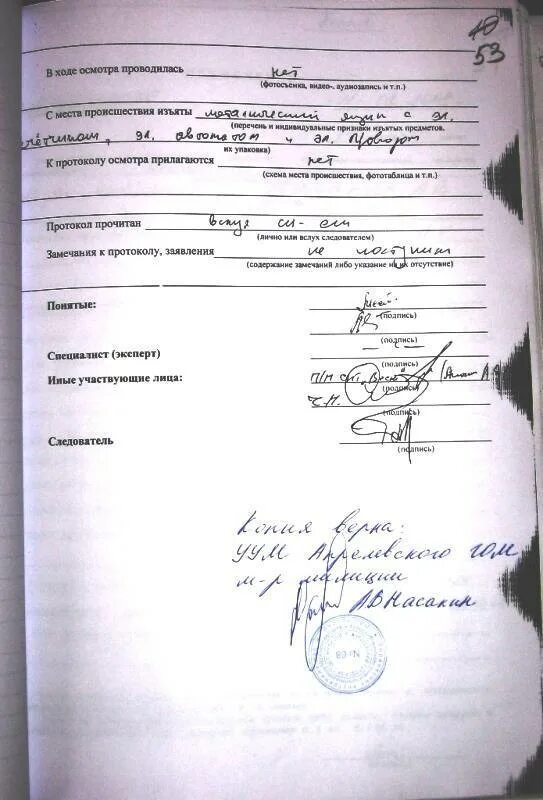 10
53
В ходе осмотра проводилась нет
(фотосъемка, видео-, аудиозапись и т.п.)
С места происшествия изъяты металический ящик с эл.
(перечень и индивидуальные признаки изъятых предметов,
счётчиком, эл. автоматом и эл. провода
их упаковка)
К протоколу осмотра прилагаются нет
(схема места происшествия, фототаблица и т.п.)
Протокол прочитан вслух сл-ем
(лично или вслух следователем)
Замечания к протоколу, заявления не поступили
(содержание замечаний либо указание на их отсутствие)
Понятые:
(подпись)
(подпись)
Специалист (эксперт) — —
(подпись)
Иные участвующие лица:
(подпись)
(подпись)
Следователь
(подпись)
Копия верна:
УУМ Апрелевского ГОМ
м-р милиции
А В Насакин